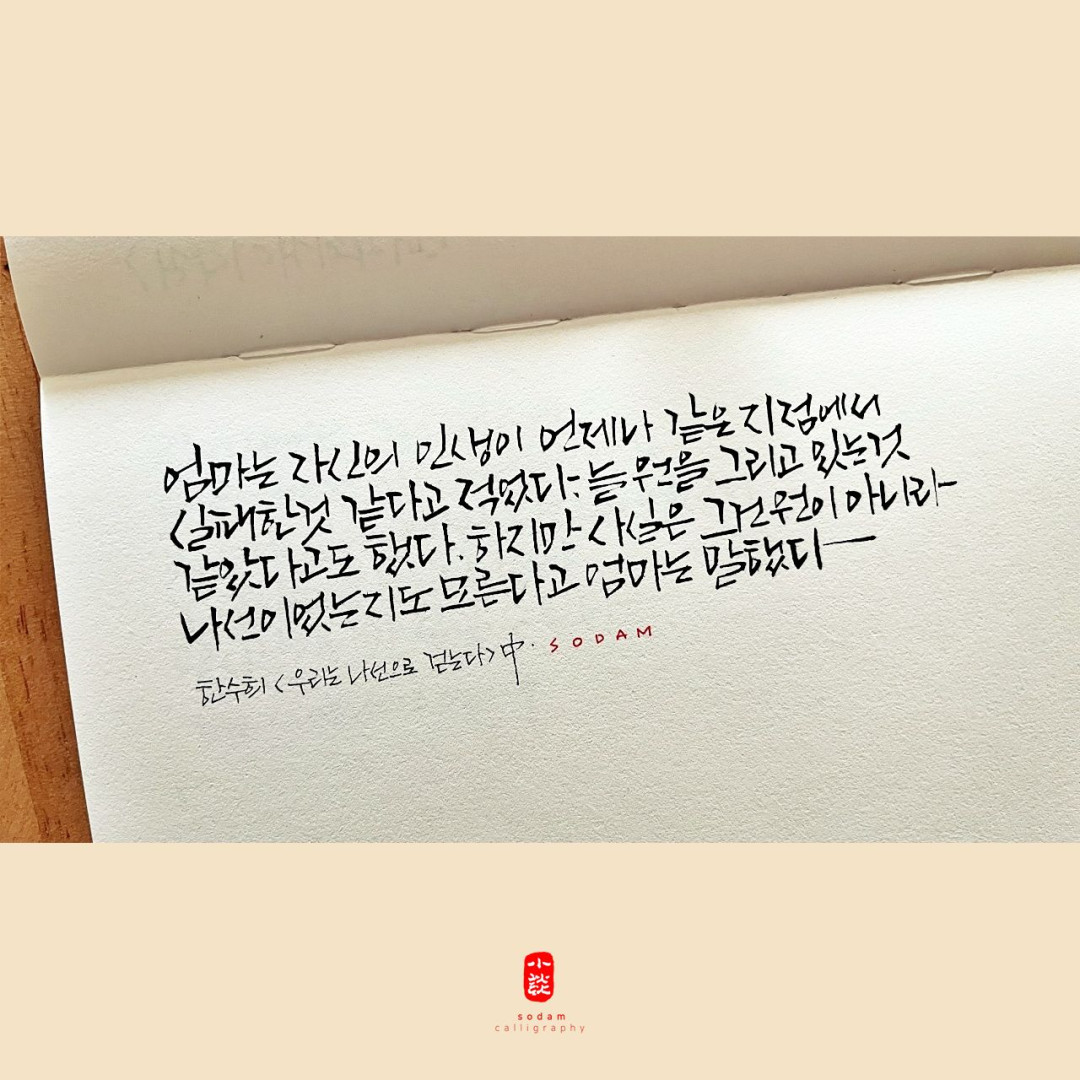 엄마는 자신의 인생이 언제나 같은 지점에서
실패한것 같다고 적었다. 늘 원을 그리고 있는것
같았다고도 했다. 하지만 사실은 그건 원이 아니라
나선이었는지도 모른다고 엄마는 말했다
한수희 <우라는 나선으로 걷는다> 中. SODAM
小談
sodam
calligraphy